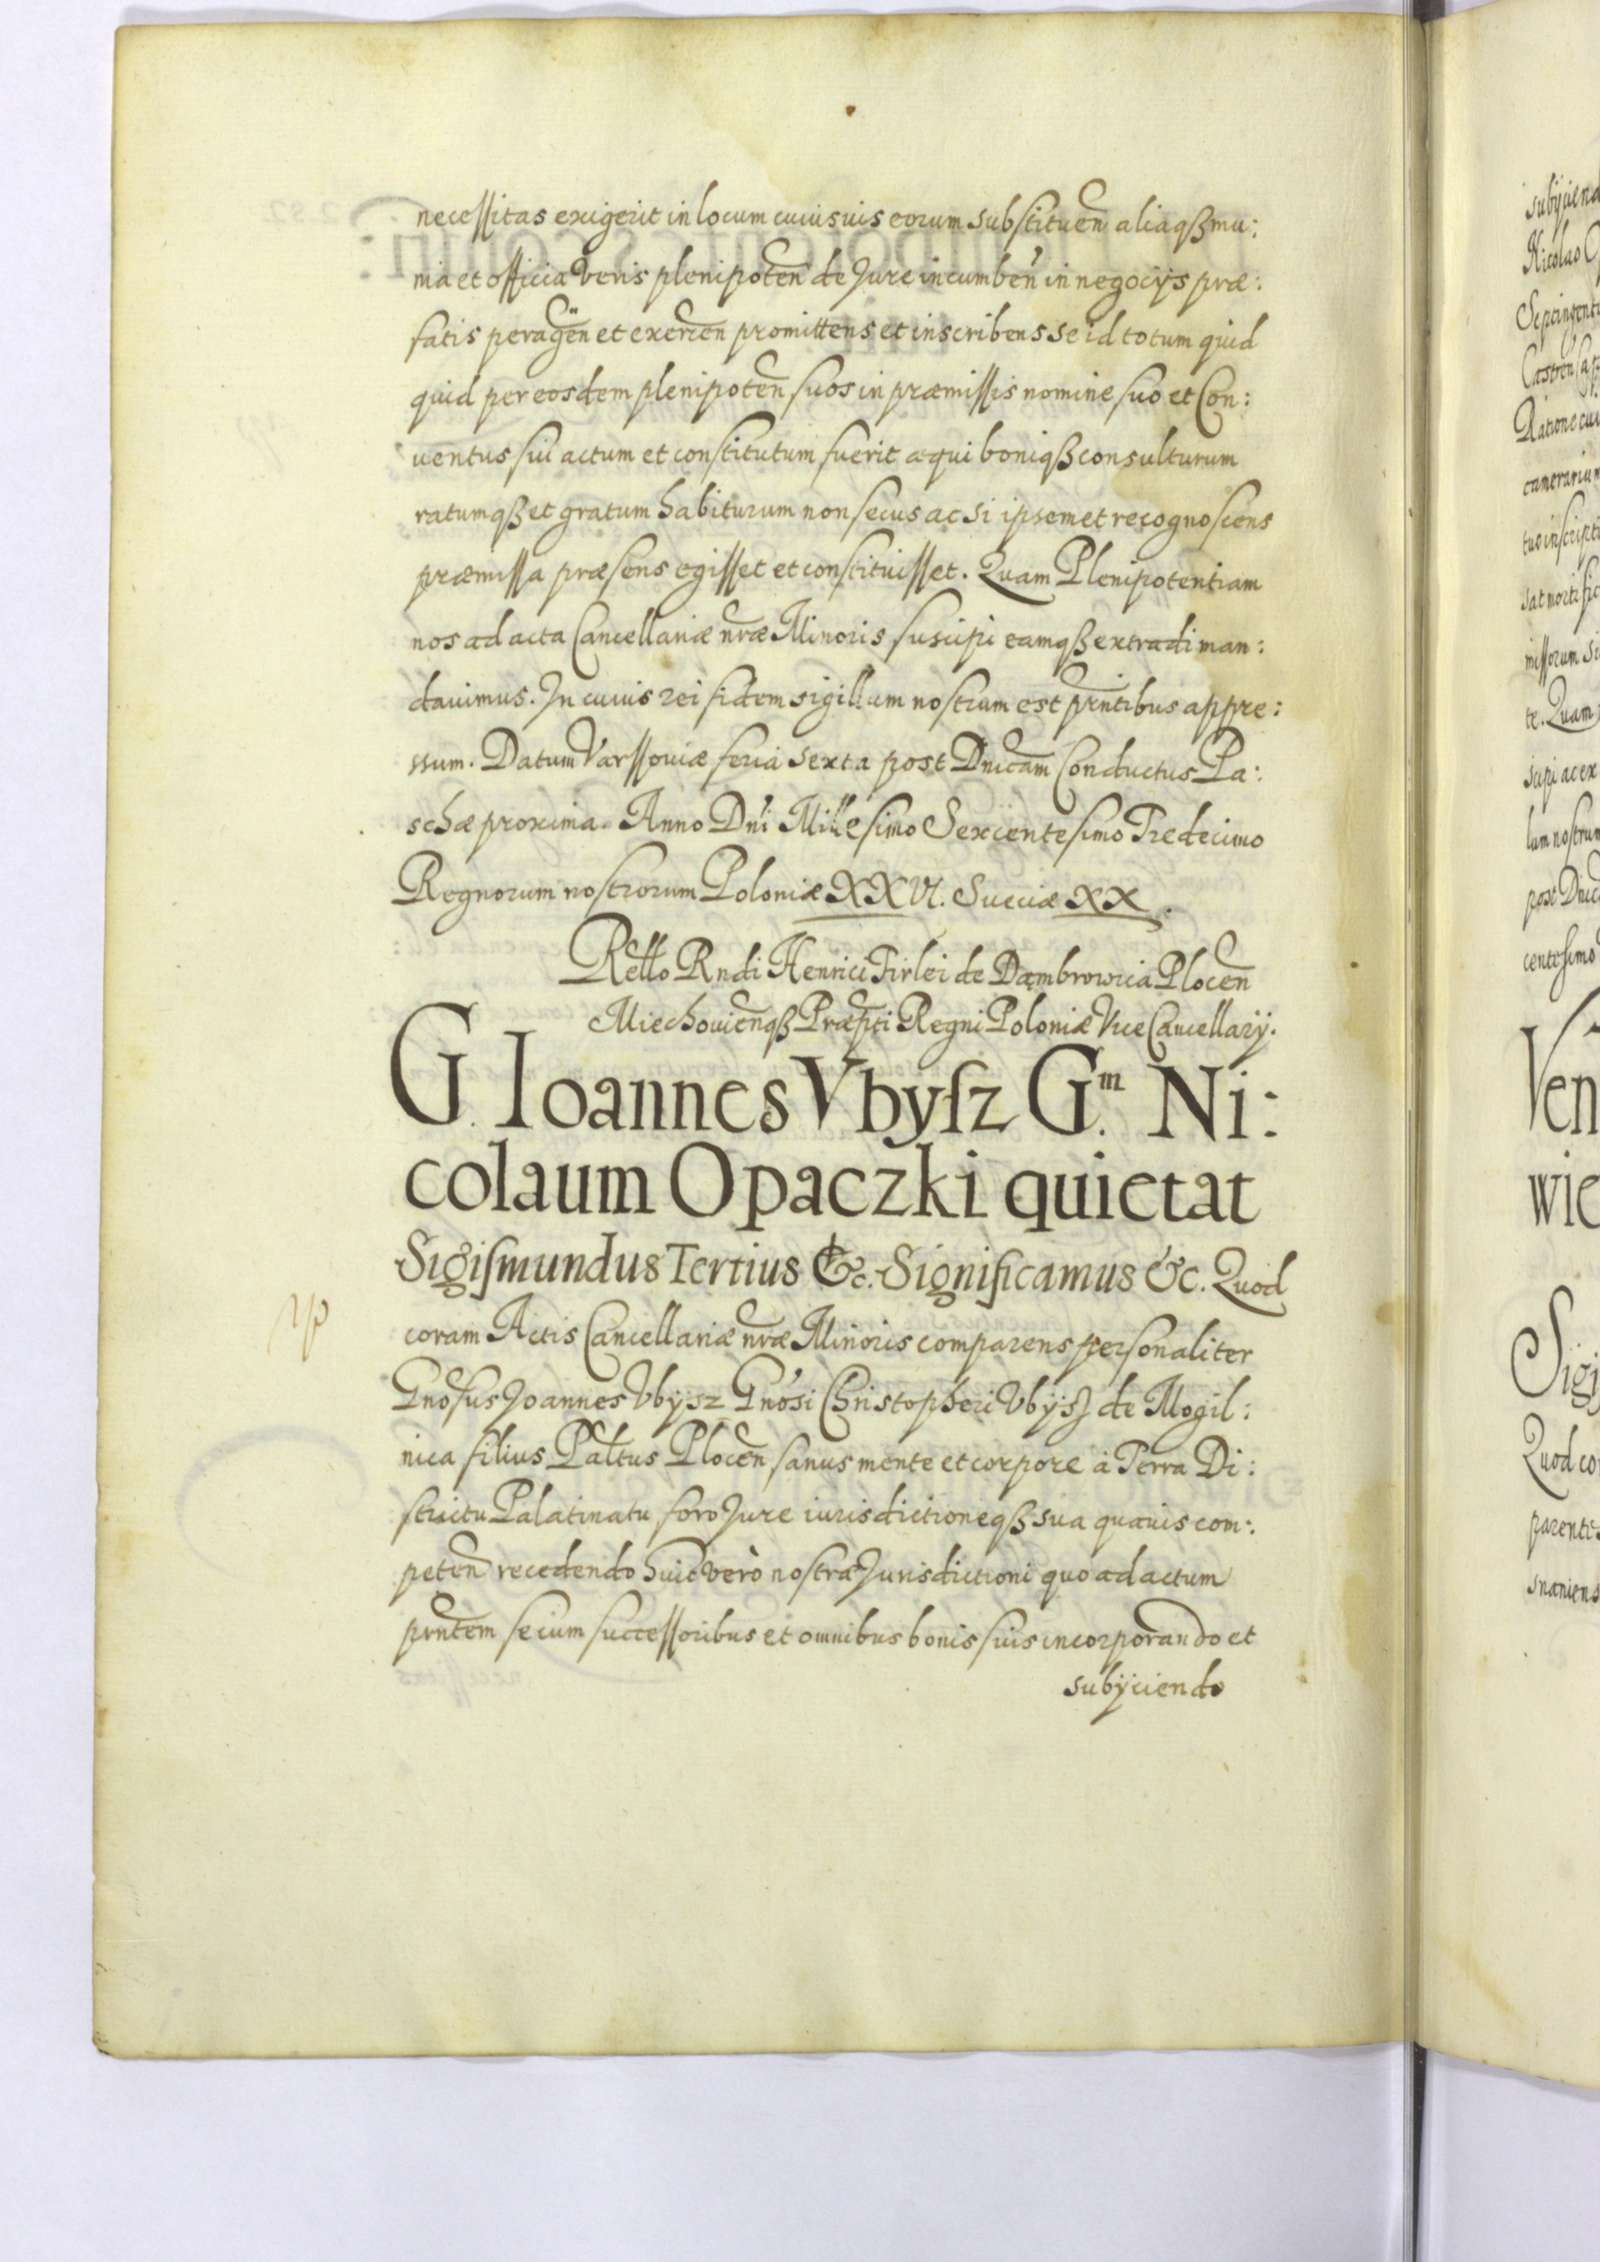 necessitas exigerit in locum cuiusuis eorum substituen aliaqß mu:
nia et officia veris plenipoten de Jure incumben in negocijs præ:
fatis peragen et exercen promittens et inscribens se id totum quid
quid per eosdem plenipoten suos in præmissis nomine suo et Con:
uentus sui actum et constitutum fuerit æqui boniqß consulturum
ratumqß et gratum habiturum non secus ac si ipsemet recognoscens
præmissa præsens egisset et constituisset. Quam Plenipotentiam
nos ad acta Cancellariæ nræ Minoris suscipi eamqß extradi man:
dauimus. In cuius rei fidem sigillum nostrum est prntibus appre:
ssum. Datum Varssouiæ feria sexta post Dnicam Conductus Pa:
schæ proxima. Anno Dni Millesimo Sexcentesimo Tredecimo
Regnorum nostrorum Poloniæ XXVI. Sueciæ XX.
Rello Rndi Henrici Firlei de Dąmbrowica Plocen
Miechouienqß Præpti Regni Poloniæ Vice Cancellarij.
G. Ioannes Vbysz G.m Ni:
colaum Opaczki quietat
Sigismundus Tertius &c. Significamus &c. Quod
coram Actis Cancellariæ nræ Minoris comparens personaliter
Gnosus Joannes Vbysz Gnosi Christopheri Vbysz de Mogil:
nica filius Paltus Plocen sanus mente et corpore à Terra Di:
strictu Palatinatu foro Jure iurisdictioneqß sua quauis com:
peten recedendo huic verò nostræ Jurisdictioni quo ad actum
prntem se cum successoribus et omnibus bonis suis incorporando et
subÿciendo
subijciend
Nicolao
Septingent
Castren
Ratione cui
camerarium
tus inscripti
sat mortific
missorum si
te. Quam
scipi ac ex
lum nostrum
post Dnic
centesimo
Ven
wie
Sigi
Quod co
parentes
snaniens